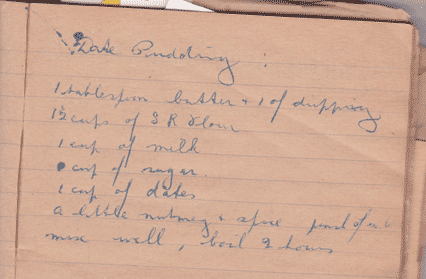 Date Pudding :
1 tablespoon butter + 1 of dripping
1½ cups of S R Flour
1 cup of milk
cup of sugar.
1 cup of dates
a little nutmeg + spice pinch of
mix well, boil 2 hours